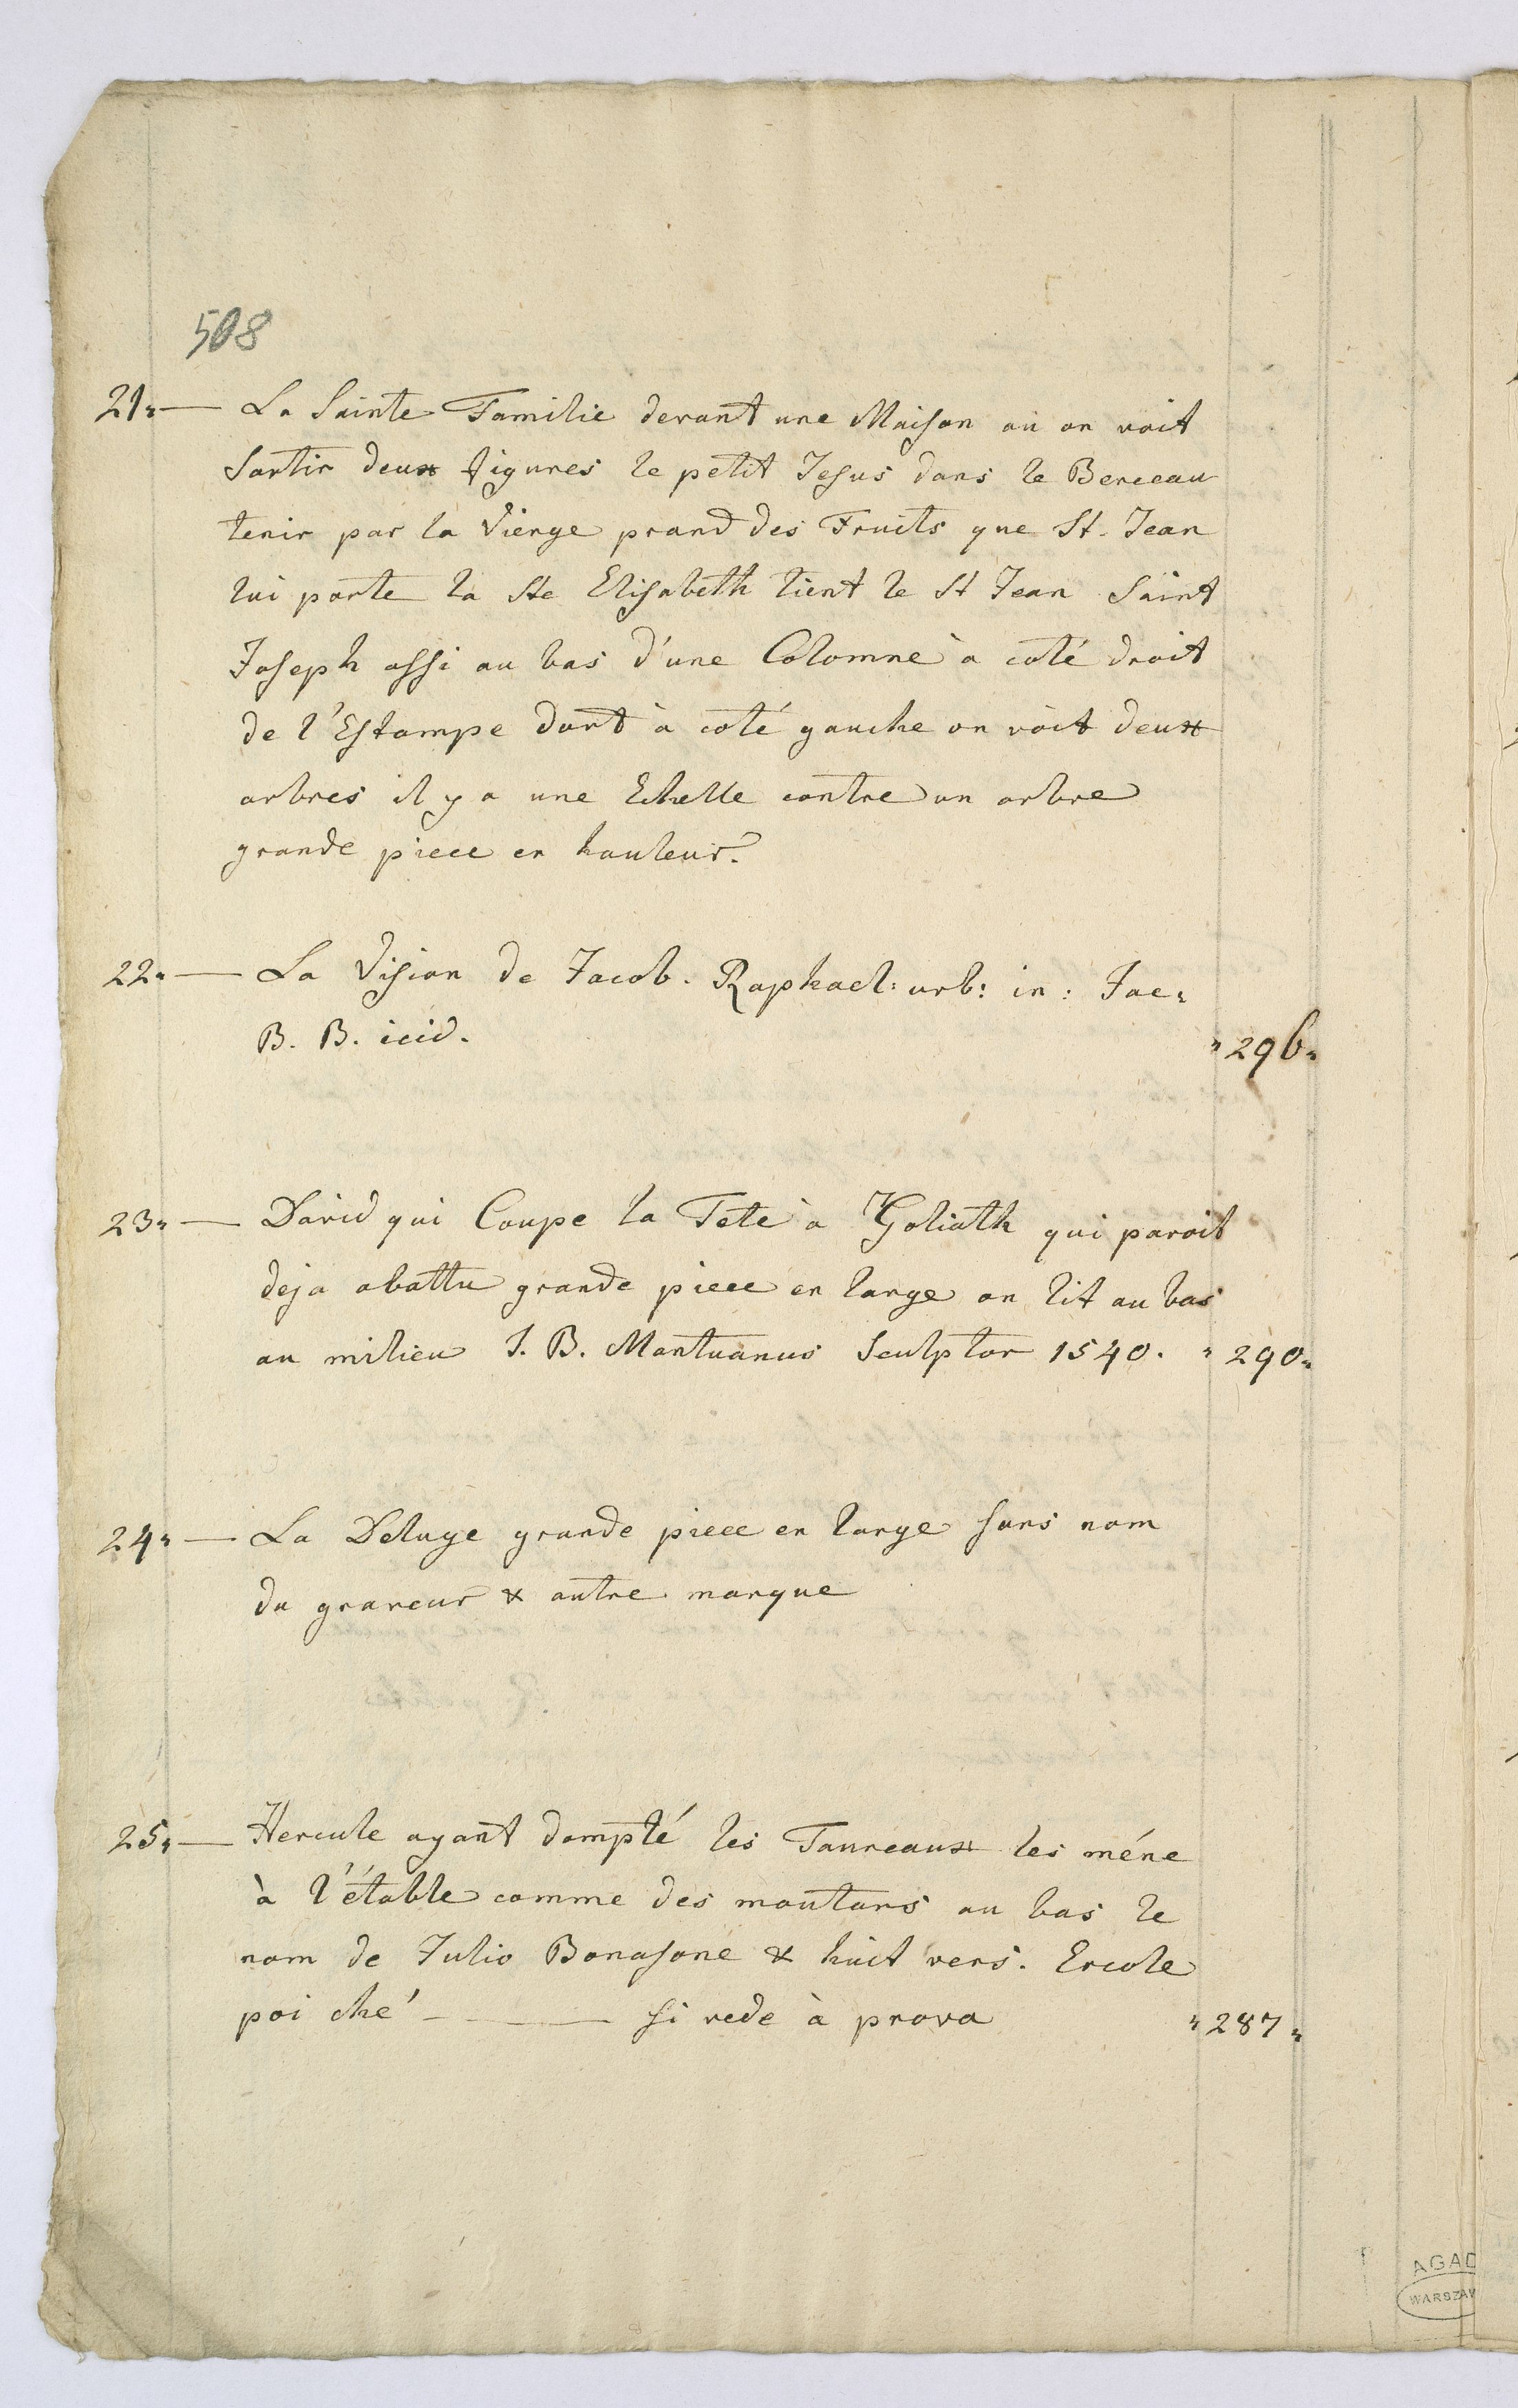 508
21" — La Sainte Familie devant une Maison ou on voit
Sortir deux figures le petit Jesus dans le Berceau
tenir par la Vierge prand des Fruits que St. Jean
lui porte la Ste Elisabeth tient le St Jean Saint
Joseph assi au bas d'une Colomne à coté droit
de l'Estampe dont à coté gauche on voit deux
arbres il y a une Echelle contre un arbre
grande piece en hauteur.
22" — La Vision de Jacob. Raphael: urb: in: Jac"
B. B. icid. " 296"
23" — David qui Coupe la Tete à Goliath qui paroit
deja abattu grande piece en large on lit au bas
au milieu J. B. Mantuanus Sculptor 1540. " 290"
24" — La Deluge grande piece en large sans nom
du graveur & autre marque
25" — Hercule ayant dompté les Taureaux les méne
à l'étable comme des moutons au bas le
nom de Julio Bonasone & huit vers. Ercole
poi ché - — — si vede à prova " 287"
AGAD
WARSZAW